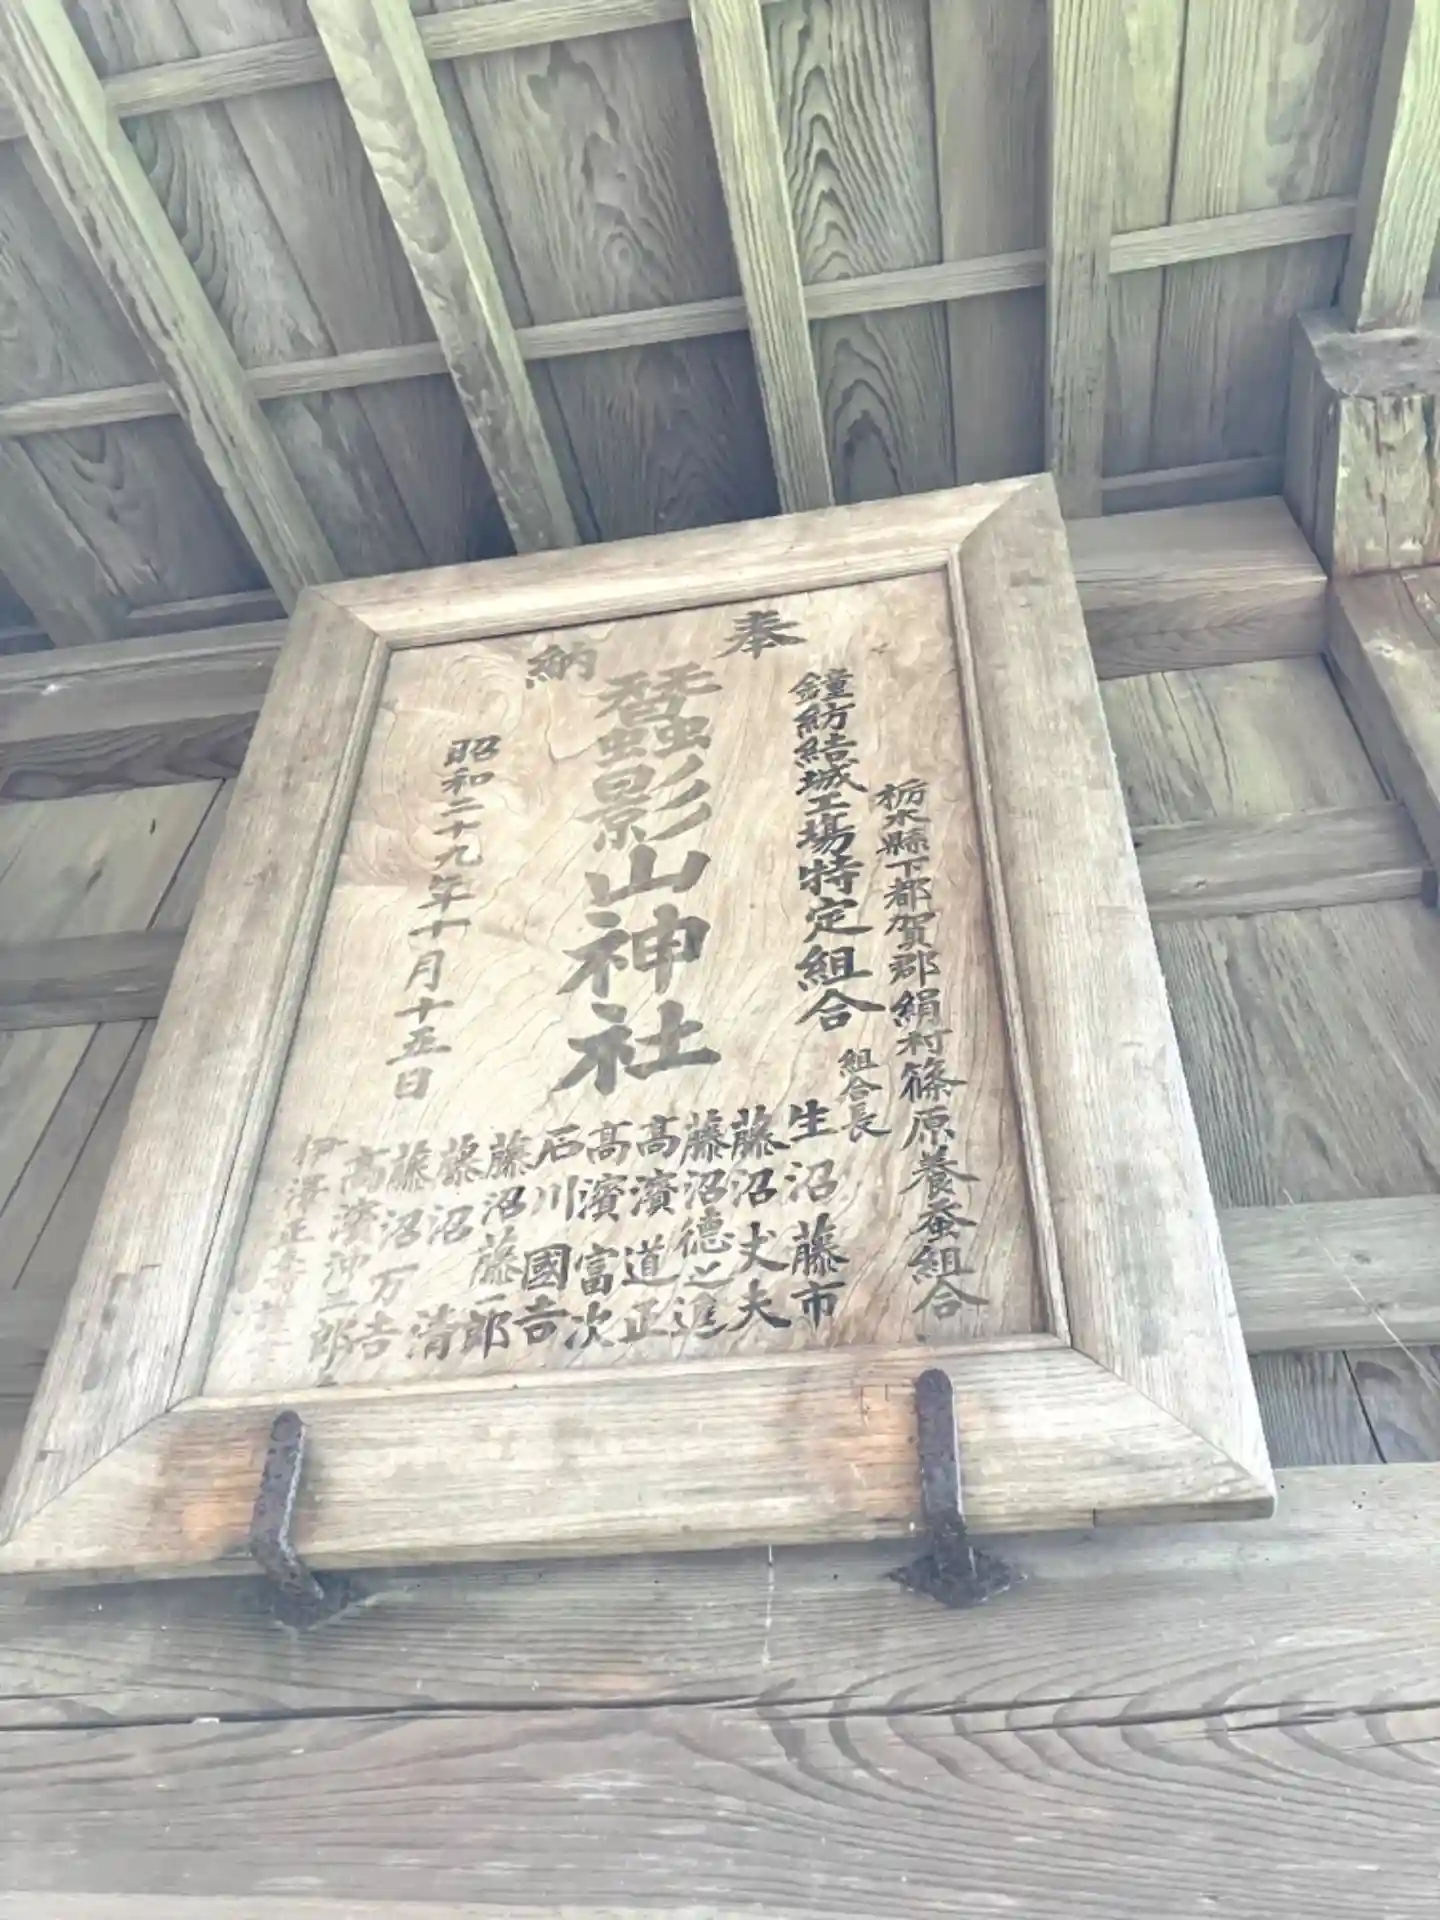 奉納
栃木縣下都賀郡絹村篠原養蚕組合
鐘紡結城工場特定組合
組合長 生沼藤市
藤沼丈夫
藤沼德之進
高濱道正
高濱富次
石川國吉
藤沼藤一郎
藤沼清
藤沼万吉
高濱沖二郎
伊澤正
蠶影山神社
昭和二十九年十月十五日